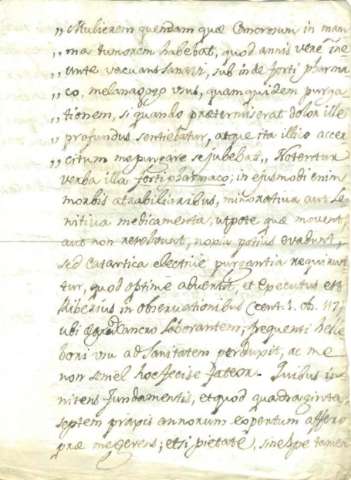 „ Mulierem quendam quæ Cancrosum in mam
„ ma tumorem habebat, quod annis vere ine
„ unte vacuans sanavi, sub inde forti pharma
„ co, melanagogo usus, quam quidem purga
„ tionem, si quando prætermiserat dolor ille
„ profundus sentiebatur, atque ita illico accer
„ citum me purgare se jubebat „ Notentur
verba illa forti pharmaco; in ejusmodi enim
morbis atrabiliaribus, minorativa aut Le
nitiva medicamenta, utpote quæ movent
aut non revolvunt, noxia potius evadunt,
sed Catartica electriæ purgantia requirun
tur, quod optime advertit, et executus est
Riberius in observationibus Cent. 1. ob. 117,
ubi Cancro Laborantem, frequenti Hele
bori usu ad sanitatem perduxit, ac me
non semel hoc fecise fateor. Quibus in
nitens fundamentis, et quod quadraginta
septem propis annorum expertum affero
præ me gerens; etsi pietate, sine spe tamen